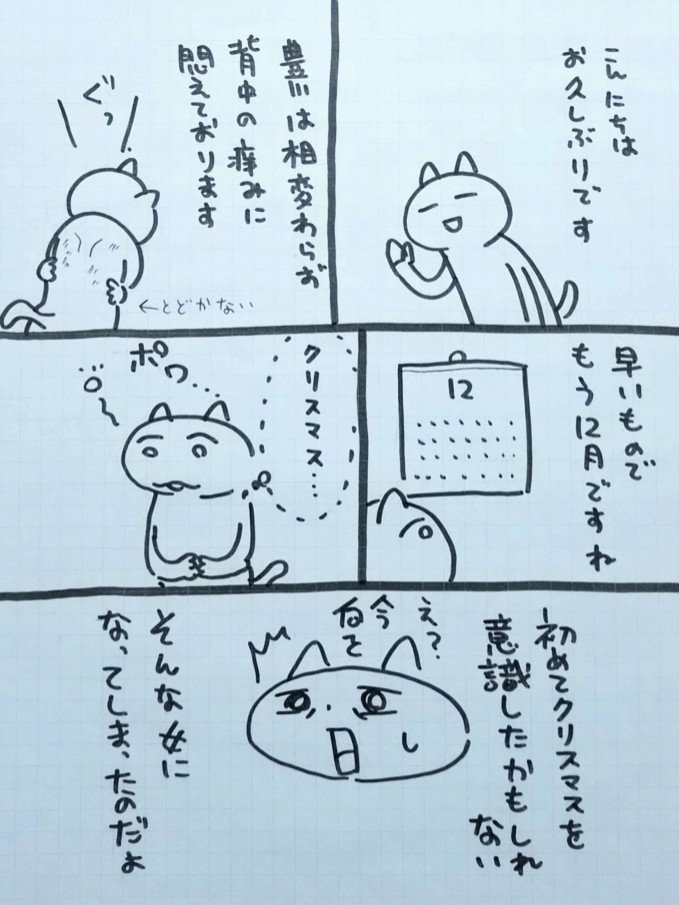 こんにちは
お久しぶりです
豊川は相変わらず
背中の痒みに
悶えております
ぐっ
←とどかない
早いもので
もう12月ですね
12
クリスマス…
ポワ…
初めてクリスマスを
意識したかもしれ
ない
え?
今
何を
そんな女に
なってしまったのだよ